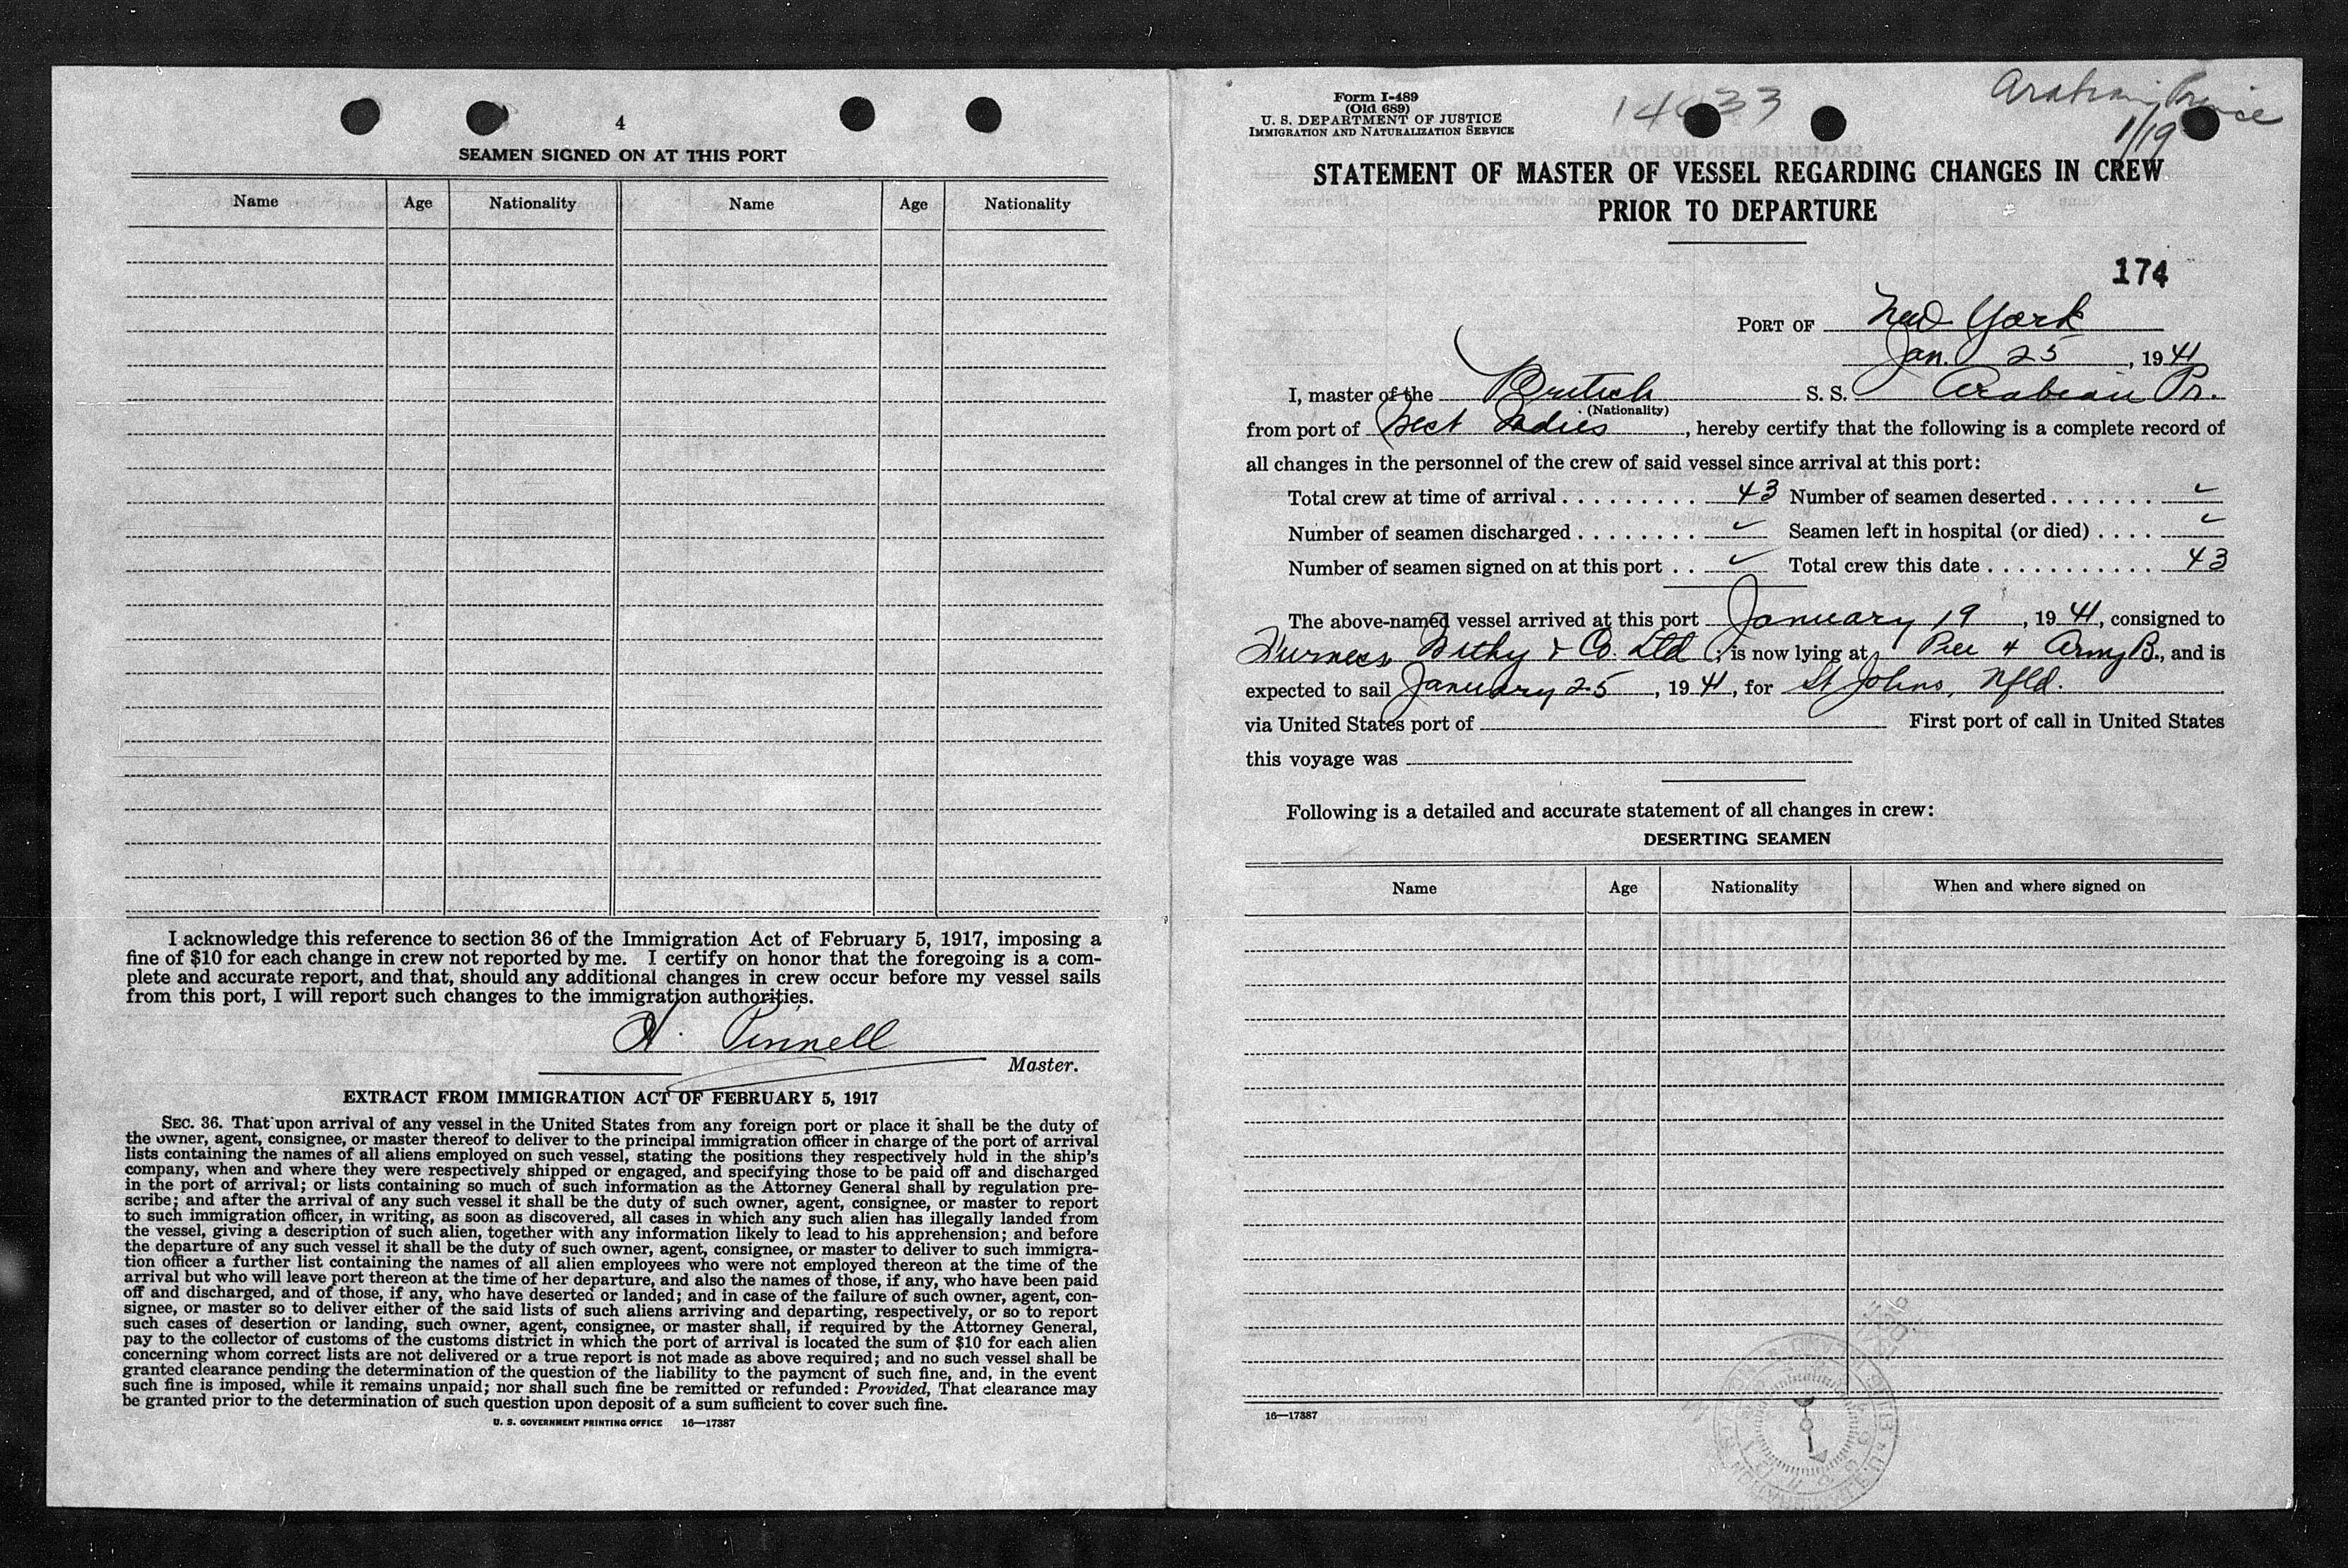 4
SEAMEN SIGNED ON AT THIS PORT
Name Age Nationality Name Age Nationality
I acknowledge this reference to section 36 of the Immigration Act of February 5, 1917, imposing a
fine of $10 for each change in crew not reported by me. I certify on honor that the foregoing is a com-
plete and accurate report, and that, should any additional changes in crew occur before my vessel sails
from this port, I will report such changes to the immigration authorities.
H. Pinnell
Master.
EXTRACT FROM IMMIGRATION ACT OF FEBRUARY 5, 1917
SEC. 36. That upon arrival of any vessel in the United States from any foreign port or place it shall be the duty of
the owner, agent, consignee, or master thereof to deliver to the principal immigration officer in charge of the port of arrival
lists containing the names of all aliens employed on such vessel, stating the positions they respectively hold in the ship's
company, when and where they were respectively shipped or engaged, and specifying those to be paid off and discharged
in the port of arrival; or lists containing so much of such information as the Attorney General shall by regulation pre-
scribe; and after the arrival of any such vessel it shall be the duty of such owner, agent, consignee, or master to report
to such immigration officer, in writing, as soon as discovered, all cases in which any such alien has illegally landed from
the vessel, giving a description of such alien, together with any information likely to lead to his apprehension; and before
the departure of any such vessel it shall be the duty of such owner, agent, consignee, or master to deliver to such immigra-
tion officer a further list containing the names of all alien employees who were not employed thereon at the time of the
arrival but who will leave port thereon at the time of her departure, and also the names of those, if any, who have been paid
off and discharged, and of those, if any, who have deserted or landed; and in case of the failure of such owner, agent, con-
signee, or master so to deliver either of the said lists of such aliens arriving and departing, respectively, or so to report
such cases of desertion or landing, such owner, agent, consignee, or master shall, if required by the Attorney General,
pay to the collector of customs of the customs district in which the port of arrival is located the sum of $10 for each alien
concerning whom correct lists are not delivered or a true report is not made as above required; and no such vessel shall be
granted clearance pending the determination of the question of the liability to the payment of such fine, and, in the event
such fine is imposed, while it remains unpaid; nor shall such fine be remitted or refunded: Provided, That clearance may
be granted prior to the determination of such question upon deposit of a sum sufficient to cover such fine.
U. S. GOVERNMENT PRINTING OFFICE 16—17387
Form I-489
(Old 689)
U. S. DEPARTMENT OF JUSTICE
IMMIGRATION AND NATURALIZATION SERVICE
Arabian Prince
1/19
STATEMENT OF MASTER OF VESSEL REGARDING CHANGES IN CREW
PRIOR TO DEPARTURE
174
PORT OF New York
Jan. 25, 1941
I, master of the British S. S. Arabian Pr.
(Nationality)
from port of West Indies, hereby certify that the following is a complete record of
all changes in the personnel of the crew of said vessel since arrival at this port:
Total crew at time of arrival . . . . . . . . . 43 Number of seamen deserted . . . . . . . ✓
Number of seamen discharged . . . . . . . . ✓ Seamen left in hospital (or died) . . . . ✓
Number of seamen signed on at this port . . ✓ Total crew this date . . . . . . . . . . . 43
The above-named vessel arrived at this port January 19, 1941, consigned to
Furness Withy & Co. Ltd; is now lying at Pier 4 Army B., and is
expected to sail January 25, 1941, for St Johns, Nfld.
via United States port of First port of call in United States
this voyage was
Following is a detailed and accurate statement of all changes in crew:
DESERTING SEAMEN
Name Age Nationality When and where signed on
16—17387